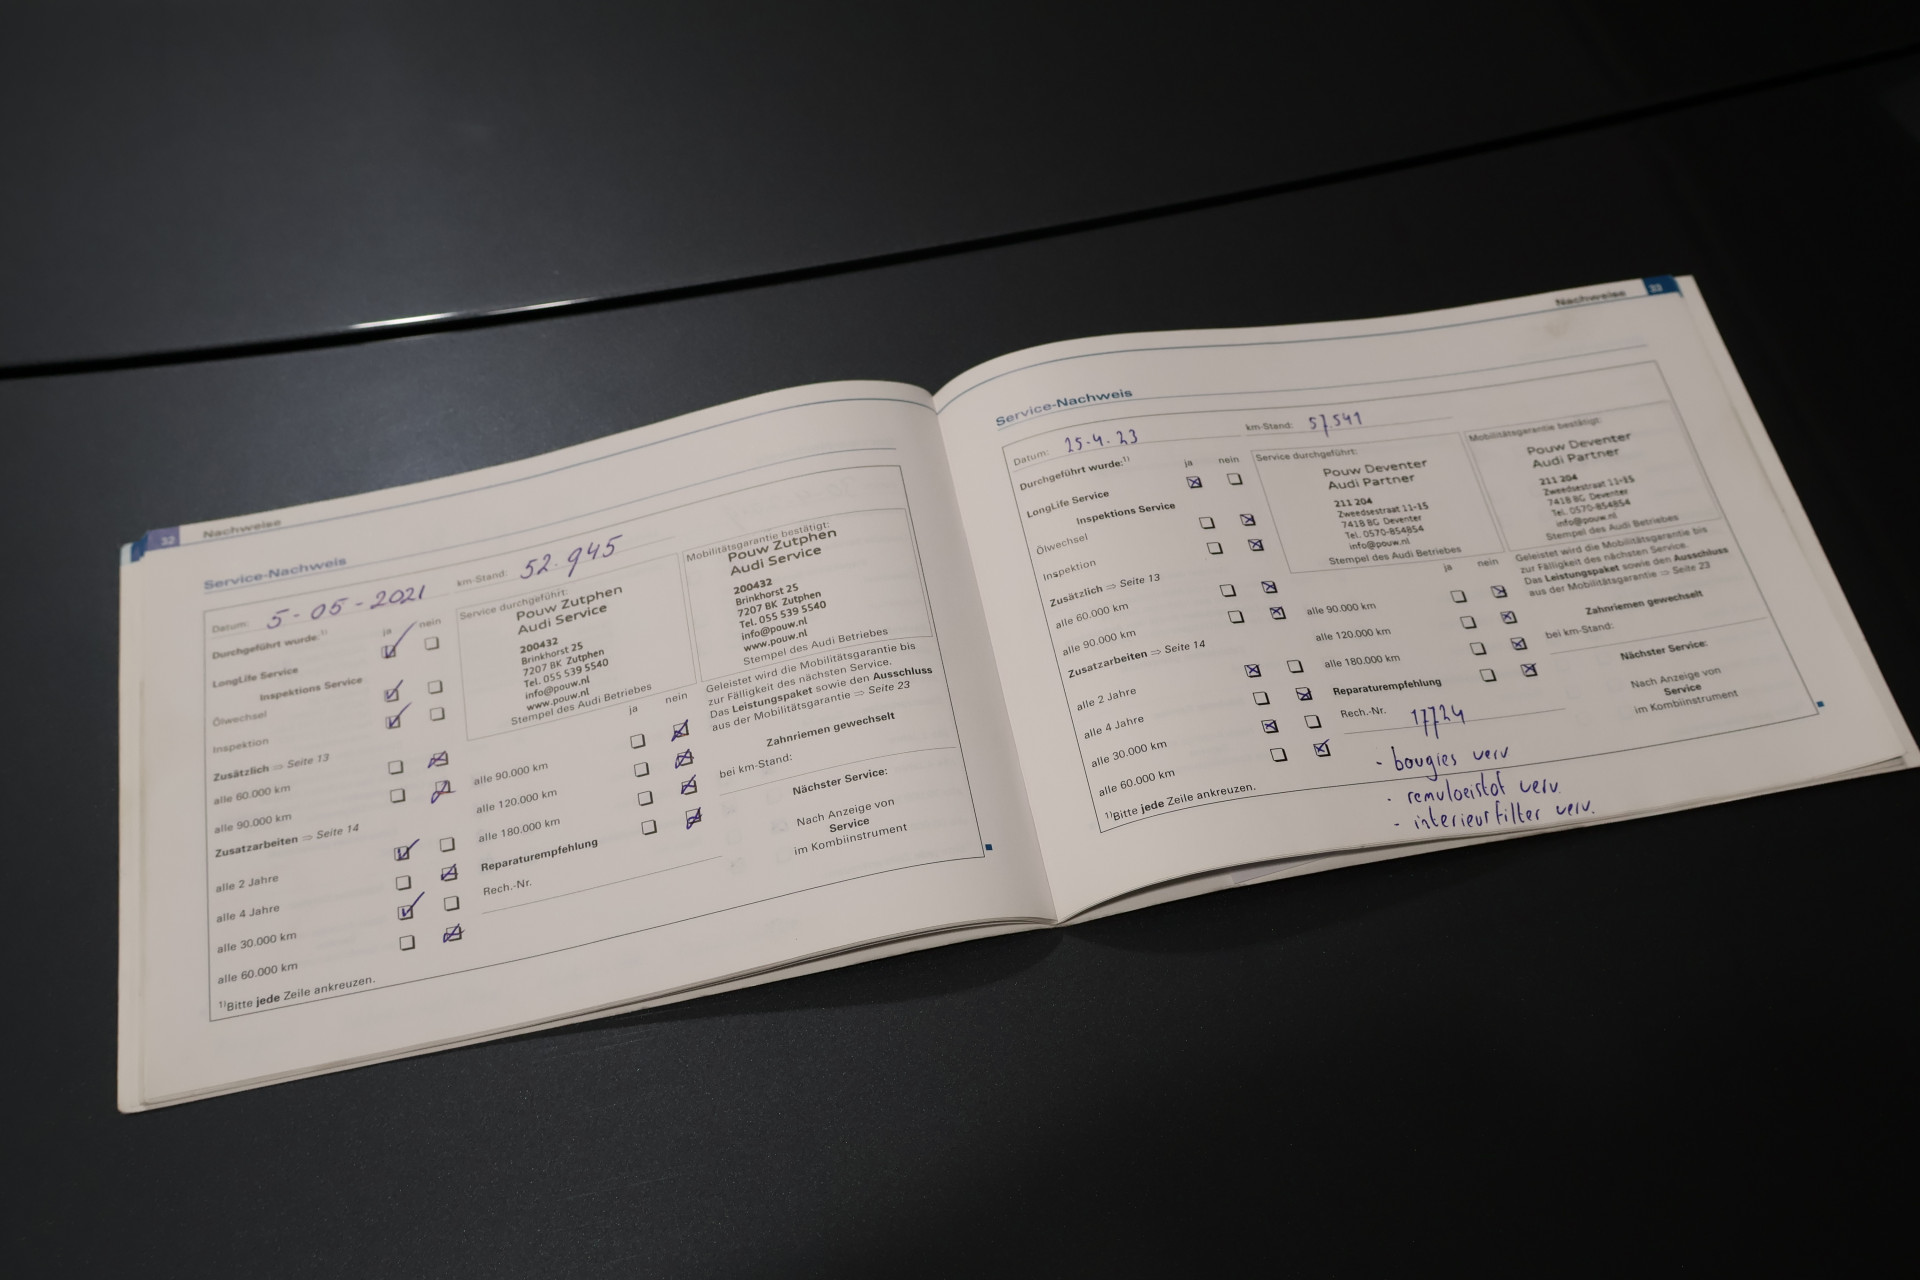 32 Nachweise
Service-Nachweis
Datum: 5-05-2021 km-Stand: 52.945
Durchgeführt wurde:1) ja nein
LongLife Service
Inspektions Service
Ölwechsel
Inspektion
Zusätzlich ⇒ Seite 13
alle 60.000 km
alle 90.000 km
Zusatzarbeiten ⇒ Seite 14
alle 2 Jahre
alle 4 Jahre
alle 30.000 km
alle 60.000 km
1)Bitte jede Zeile ankreuzen.
Service durchgeführt:
Pouw Zutphen
Audi Service
200432
Brinkhorst 25
7207 BK Zutphen
Tel. 055 539 5540
info@pouw.nl
www.pouw.nl
Stempel des Audi Betriebes
ja nein
alle 90.000 km
alle 120.000 km
alle 180.000 km
Reparaturempfehlung
Rech.-Nr.
Mobilitätsgarantie bestätigt:
Pouw Zutphen
Audi Service
200432
Brinkhorst 25
7207 BK Zutphen
Tel. 055 539 5540
info@pouw.nl
www.pouw.nl
Stempel des Audi Betriebes
Geleistet wird die Mobilitätsgarantie bis
zur Fälligkeit des nächsten Service.
Das Leistungspaket sowie den Ausschluss
aus der Mobilitätsgarantie ⇒ Seite 23
Zahnriemen gewechselt
bei km-Stand:
Nächster Service:
Nach Anzeige von
Service
im Kombiinstrument
Nachweise 33
Service-Nachweis
Datum: 25.4.23 km-Stand: 57.541
Durchgeführt wurde:1) ja nein
LongLife Service
Inspektions Service
Ölwechsel
Inspektion
Zusätzlich ⇒ Seite 13
alle 60.000 km
alle 90.000 km
Zusatzarbeiten ⇒ Seite 14
alle 2 Jahre
alle 4 Jahre
alle 30.000 km
alle 60.000 km
1)Bitte jede Zeile ankreuzen.
Service durchgeführt:
Pouw Deventer
Audi Partner
211 204
Zweedsestraat 11-15
7418 BG Deventer
Tel. 0570-854854
info@pouw.nl
Stempel des Audi Betriebes
ja nein
alle 90.000 km
alle 120.000 km
alle 180.000 km
Reparaturempfehlung
Rech.-Nr. 17724
- bougies verv
- remvloeistof verv.
- interieurfilter verv.
Mobilitätsgarantie bestätigt:
Pouw Deventer
Audi Partner
211 204
Zweedsestraat 11-15
7418 BG Deventer
Tel. 0570-854854
info@pouw.nl
Stempel des Audi Betriebes
Geleistet wird die Mobilitätsgarantie bis
zur Fälligkeit des nächsten Service.
Das Leistungspaket sowie den Ausschluss
aus der Mobilitätsgarantie ⇒ Seite 23
Zahnriemen gewechselt
bei km-Stand:
Nächster Service:
Nach Anzeige von
Service
im Kombiinstrument